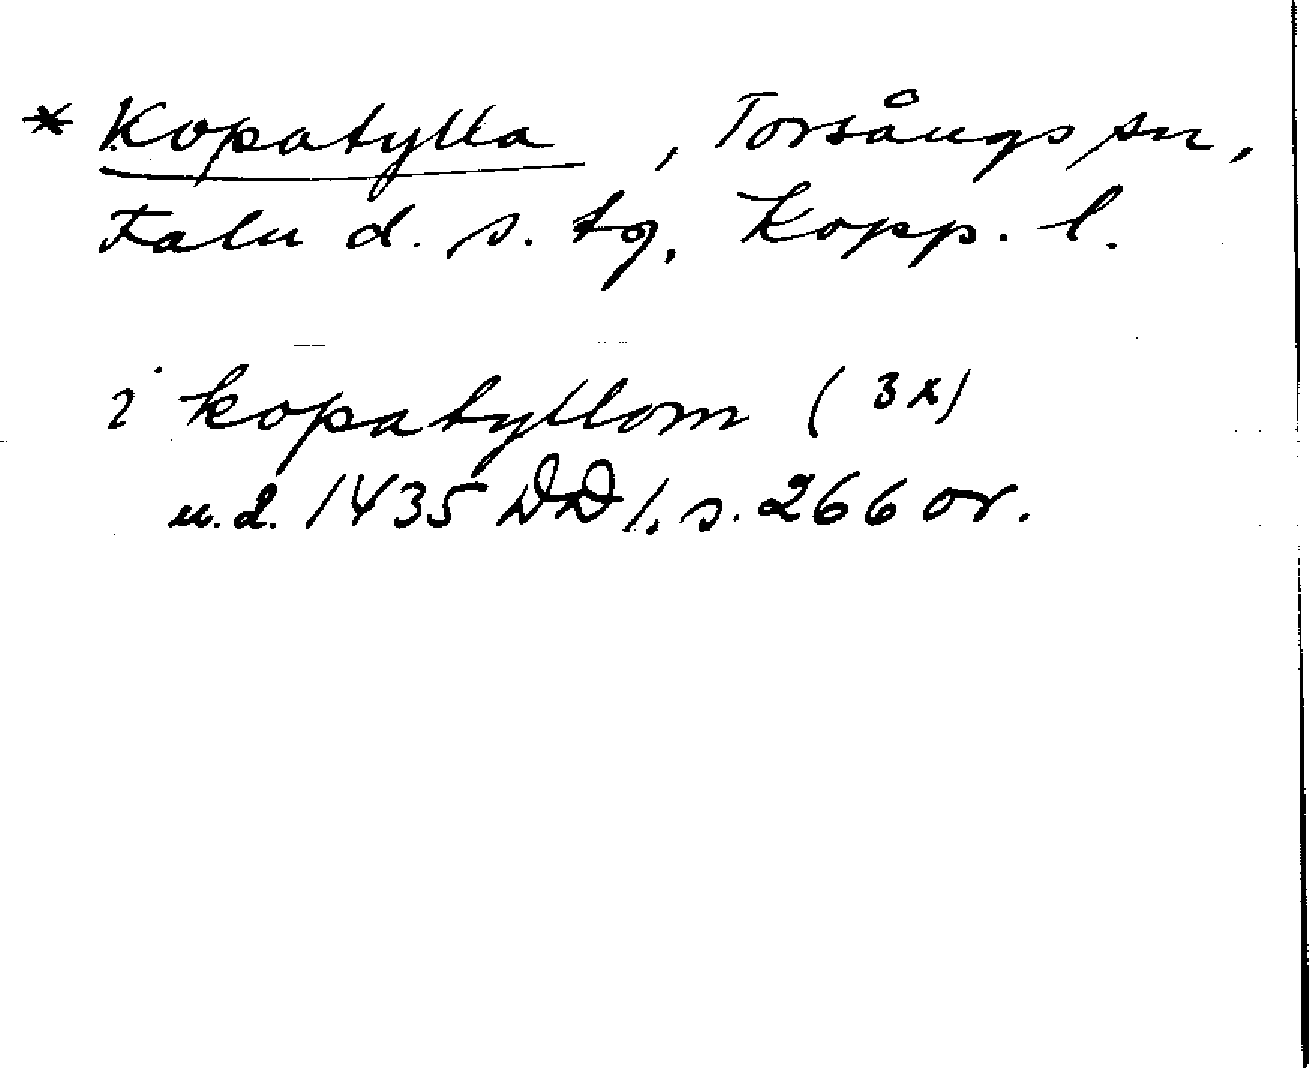 * Kopatylla, Torsångs sn,
Falu d. s. tg, Kopp. l.
i kopatyllom (3x)
u.d. 1435 DD 1. s. 266 or.